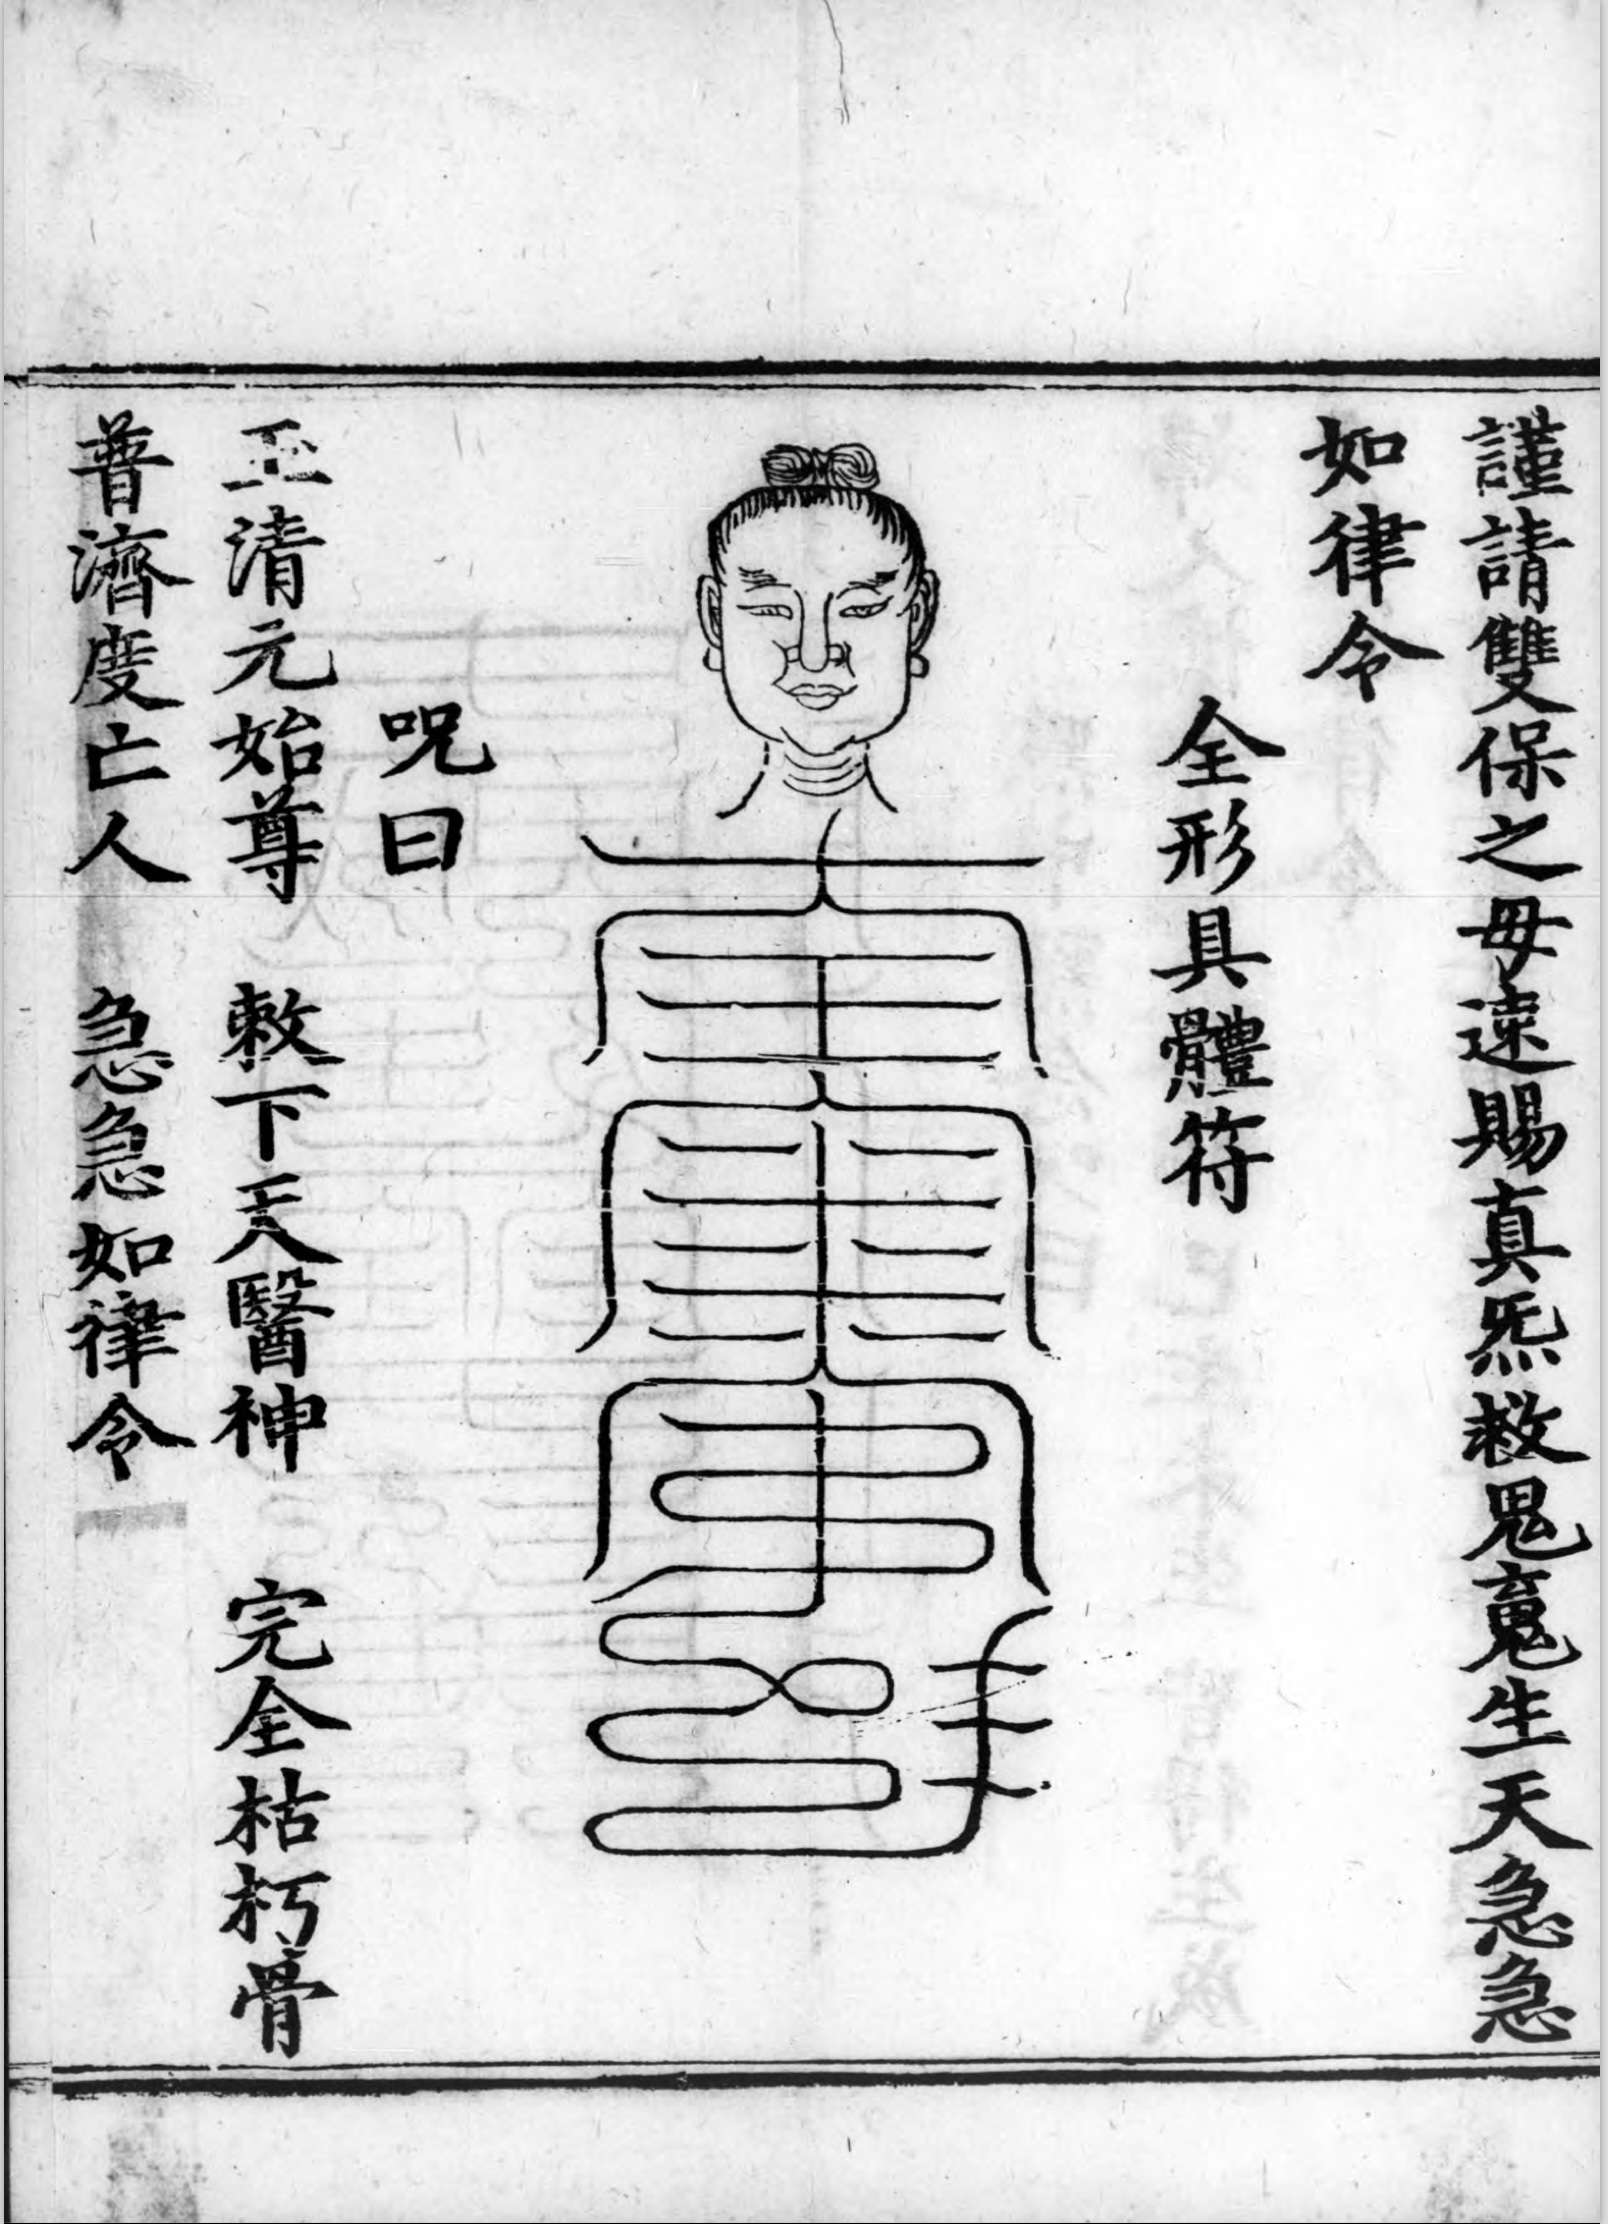 謹請雙保之母速賜真炁救䰟竟生天急急
如律令
全形具體符
咒曰
玉清元始尊　敕下天醫神　完全枯朽骨
普濟度亡人　急急如律令